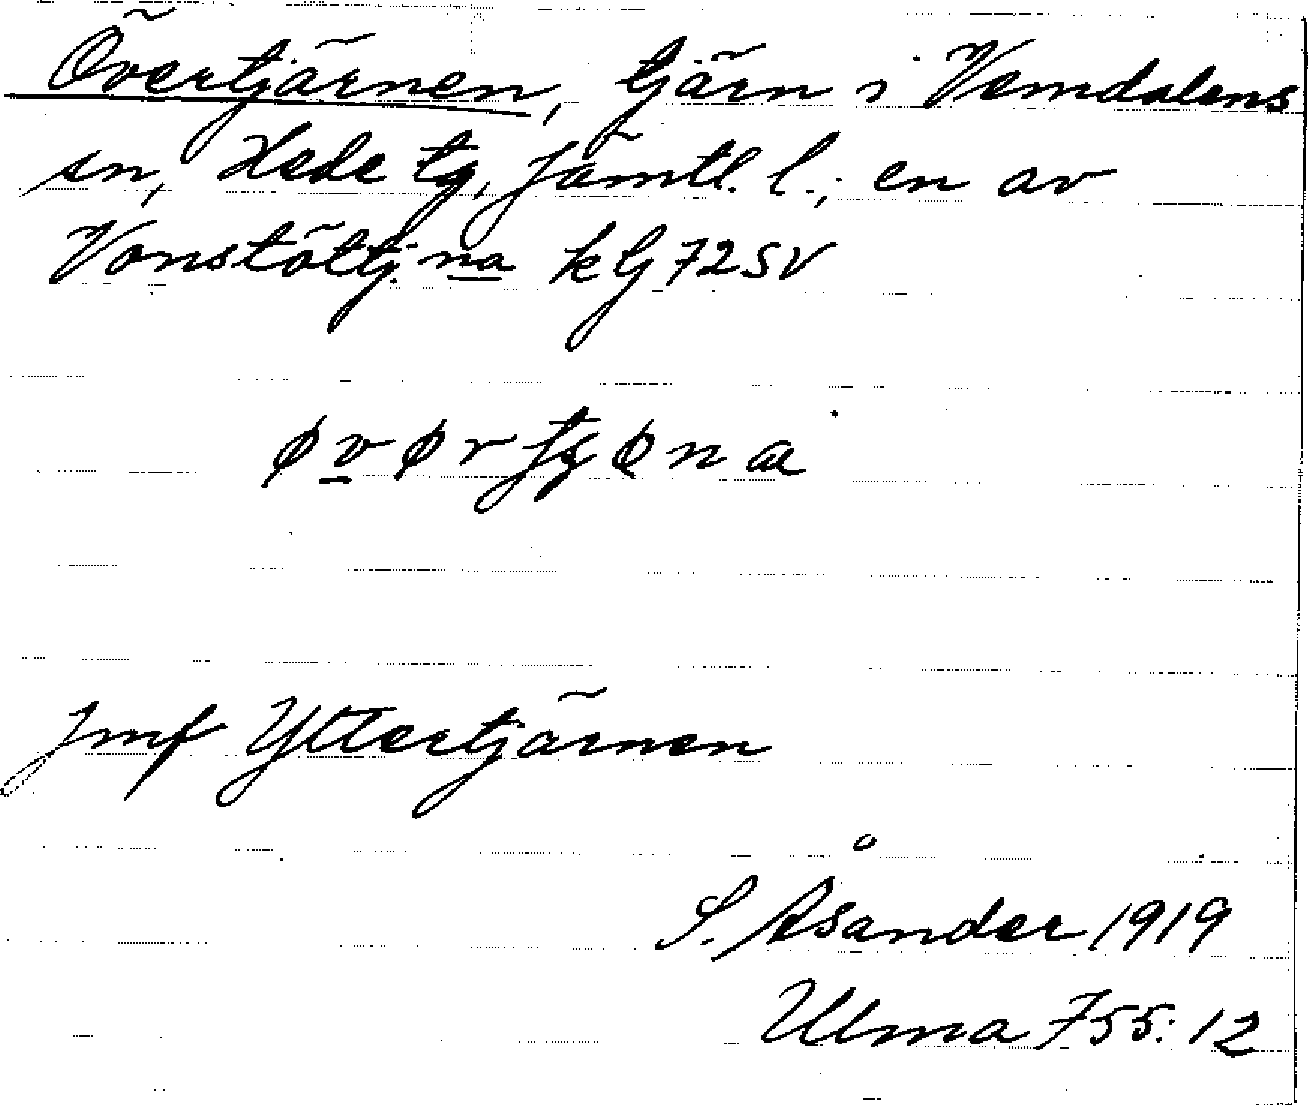 Övertjärnen, tjärn i Vemdalens
sn, Hede tg, Jämtl. l.; en av
Vonstöttj:na kbl 72 SV
Jmf Yttertjärnen
S. Åsander 1919
Ulma 755:12